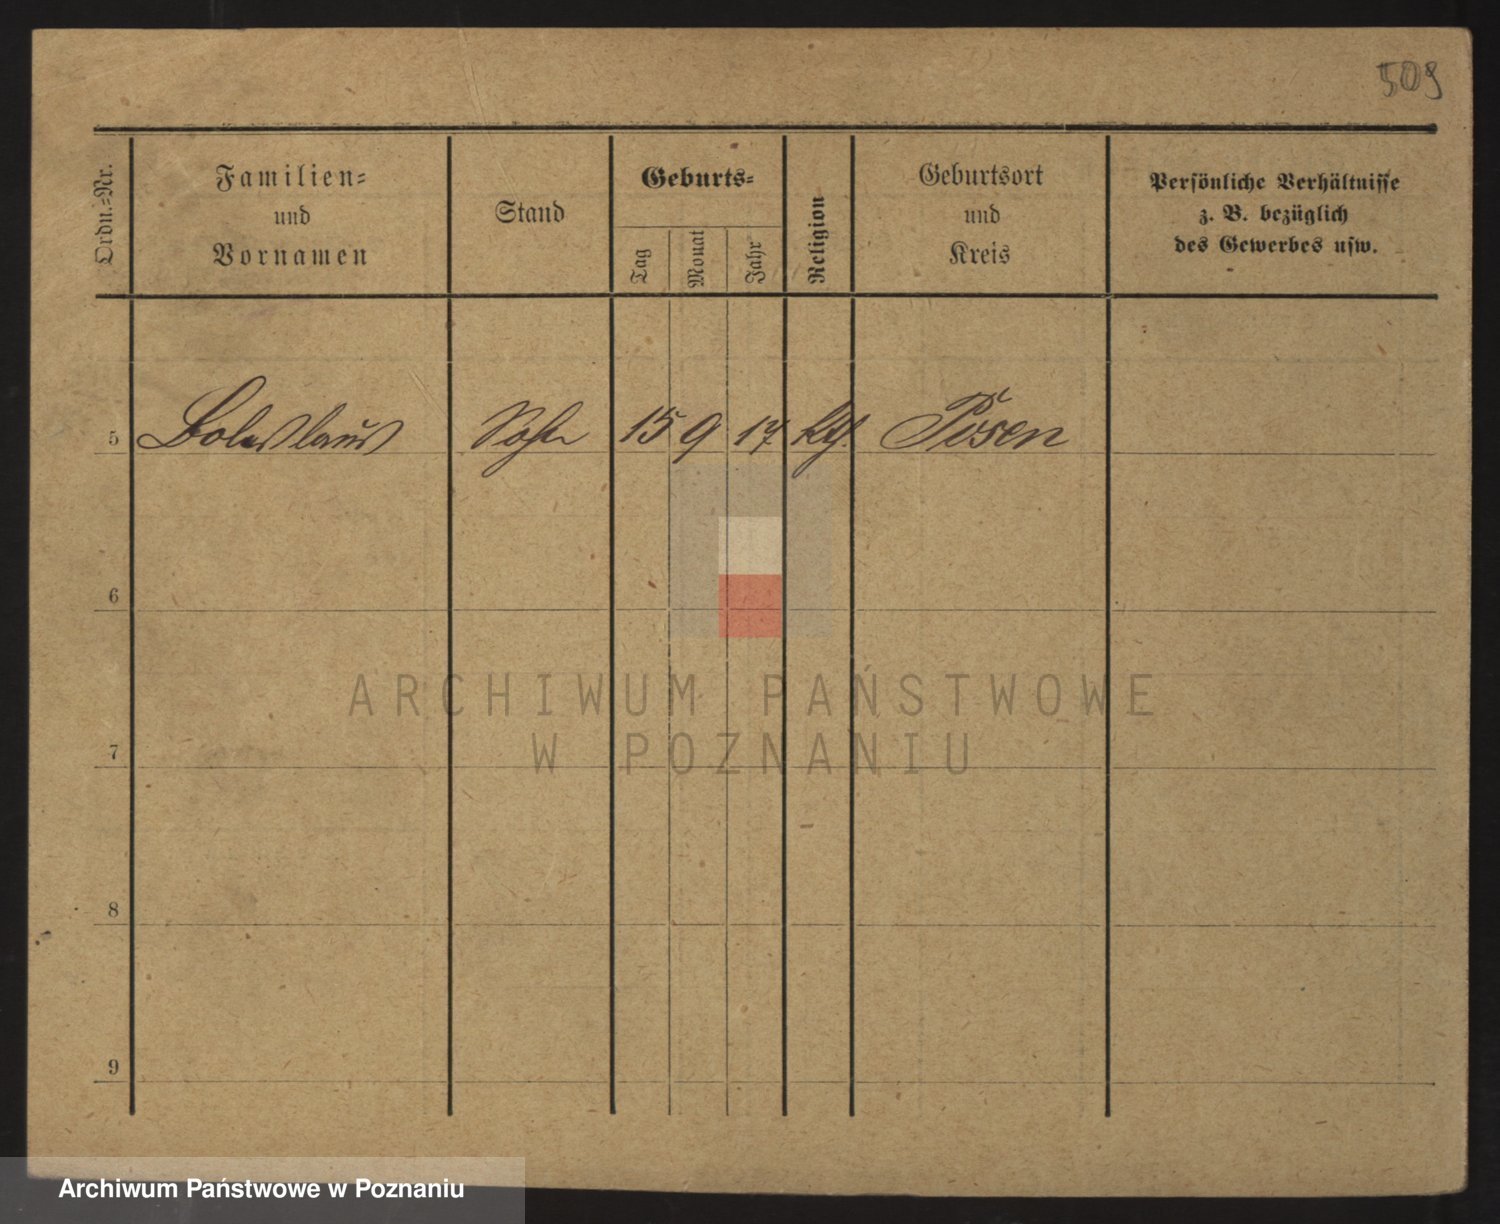 509
Ordn.-Nr.
Familien-
und
Vornamen
Stand
Geburts-
Tag
Monat
Jahr
Religion
Geburtsort
und
Kreis
Persönliche Verhältnisse
z. B. bezüglich
des Gewerbes usw.
5 Boleslaus Sohn 15 9 17 kth. Posen
6
ARCHIWUM PAŃSTWOWE
W POZNANIU
7
8
9
Archiwum Państwowe w Poznaniu